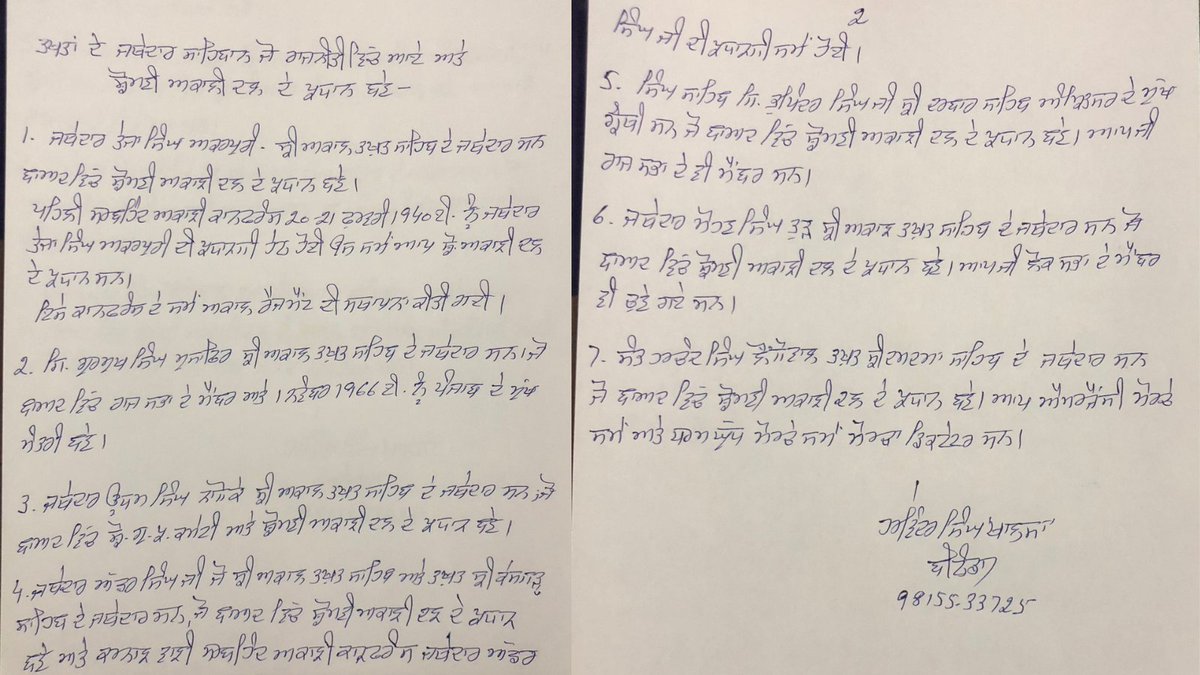 ਤਖ਼ਤਾਂ ਦੇ ਜਥੇਦਾਰ ਸਾਹਿਬਾਨ ਜੋ ਰਾਜਨੀਤੀ ਵਿੱਚ ਆਏ ਅਤੇ
ਸ਼੍ਰੋਮਣੀ ਅਕਾਲੀ ਦਲ ਦੇ ਪ੍ਰਧਾਨ ਬਣੇ -
1. ਜਥੇਦਾਰ ਤੇਜਾ ਸਿੰਘ ਅਕਰਪੁਰੀ - ਸ੍ਰੀ ਅਕਾਲ ਤਖ਼ਤ ਸਾਹਿਬ ਦੇ ਜਥੇਦਾਰ ਸਨ
ਬਾਅਦ ਵਿੱਚ ਸ਼੍ਰੋਮਣੀ ਅਕਾਲੀ ਦਲ ਦੇ ਪ੍ਰਧਾਨ ਬਣੇ।
ਪਹਿਲੀ ਆਲਹਿੰਦ ਅਕਾਲੀ ਕਾਨਫਰੰਸ 20-21 ਫ਼ਰਵਰੀ 1940 ਈ. ਨੂੰ ਜਥੇਦਾਰ
ਤੇਜਾ ਸਿੰਘ ਅਕਰਪੁਰੀ ਦੀ ਪ੍ਰਧਾਨਗੀ ਹੇਠ ਹੋਈ ਉਸ ਸਮੇਂ ਆਪ ਸ਼੍ਰੋ ਅਕਾਲੀ ਦਲ
ਦੇ ਪ੍ਰਧਾਨ ਸਨ।
ਇਸੇ ਕਾਨਫਰੰਸ ਦੇ ਸਮੇਂ ਅਕਾਲ ਰੈਜਮੈਂਟ ਦੀ ਸਥਾਪਨਾ ਕੀਤੀ ਗਈ।
2. ਗਿ. ਗੁਰਮੁਖ ਸਿੰਘ ਮੁਸਾਫਿਰ ਸ੍ਰੀ ਅਕਾਲ ਤਖ਼ਤ ਸਾਹਿਬ ਦੇ ਜਥੇਦਾਰ ਸਨ। ਜੋ
ਬਾਅਦ ਵਿੱਚ ਰਾਜ ਸਭਾ ਦੇ ਮੈਂਬਰ ਅਤੇ 1 ਨਵੰਬਰ 1966 ਈ. ਨੂੰ ਪੰਜਾਬ ਦੇ ਮੁੱਖ
ਮੰਤਰੀ ਬਣੇ।
3. ਜਥੇਦਾਰ ਊਧਮ ਸਿੰਘ ਨਾਗੋਕੇ ਸ੍ਰੀ ਅਕਾਲ ਤਖ਼ਤ ਸਾਹਿਬ ਦੇ ਜਥੇਦਾਰ ਸਨ, ਜੋ
ਬਾਅਦ ਵਿੱਚ ਸ਼੍ਰੋ. ਗੁ. ਪ੍ਰ. ਕਮੇਟੀ ਅਤੇ ਸ਼੍ਰੋਮਣੀ ਅਕਾਲੀ ਦਲ ਦੇ ਪ੍ਰਧਾਨ ਬਣੇ।
4. ਜਥੇਦਾਰ ਅੱਛਰ ਸਿੰਘ ਜੀ ਜੋ ਸ੍ਰੀ ਅਕਾਲ ਤਖ਼ਤ ਸਾਹਿਬ ਅਤੇ ਤਖ਼ਤ ਸ੍ਰੀ ਕੇਸਗੜ੍ਹ
ਸਾਹਿਬ ਦੇ ਜਥੇਦਾਰ ਸਨ, ਜੋ ਬਾਅਦ ਵਿੱਚ ਸ਼੍ਰੋਮਣੀ ਅਕਾਲੀ ਦਲ ਦੇ ਪ੍ਰਧਾਨ
ਬਣੇ ਅਤੇ ਕਰਨਾਲ ਵਾਲੀ ਆਲਹਿੰਦ ਅਕਾਲੀ ਕਾਨਫਰੰਸ ਜਥੇਦਾਰ ਅੱਛਰ
2
ਸਿੰਘ ਜੀ ਦੀ ਪ੍ਰਧਾਨਗੀ ਸਮੇਂ ਹੋਈ।
5. ਸਿੰਘ ਸਾਹਿਬ ਗਿ. ਭੁਪਿੰਦਰ ਸਿੰਘ ਜੀ ਸ੍ਰੀ ਦਰਬਾਰ ਸਾਹਿਬ ਅੰਮ੍ਰਿਤਸਰ ਦੇ ਮੁੱਖ
ਗ੍ਰੰਥੀ ਸਨ ਜੋ ਬਾਅਦ ਵਿੱਚ ਸ਼੍ਰੋਮਣੀ ਅਕਾਲੀ ਦਲ ਦੇ ਪ੍ਰਧਾਨ ਬਣੇ। ਆਪ ਜੀ
ਰਾਜ ਸਭਾ ਦੇ ਵੀ ਮੈਂਬਰ ਸਨ।
6. ਜਥੇਦਾਰ ਮੋਹਣ ਸਿੰਘ ਤੁੜ ਸ੍ਰੀ ਅਕਾਲ ਤਖ਼ਤ ਸਾਹਿਬ ਦੇ ਜਥੇਦਾਰ ਸਨ ਜੋ
ਬਾਅਦ ਵਿੱਚ ਸ਼੍ਰੋਮਣੀ ਅਕਾਲੀ ਦਲ ਦੇ ਪ੍ਰਧਾਨ ਬਣੇ। ਆਪ ਜੀ ਲੋਕ ਸਭਾ ਦੇ ਮੈਂਬਰ
ਵੀ ਚੁਣੇ ਗਏ ਸਨ।
7. ਸੰਤ ਹਰਚੰਦ ਸਿੰਘ ਲੌਂਗੋਵਾਲ ਤਖ਼ਤ ਸ੍ਰੀ ਦਮਦਮਾ ਸਾਹਿਬ ਦੇ ਜਥੇਦਾਰ ਸਨ
ਜੋ ਬਾਅਦ ਵਿੱਚ ਸ਼੍ਰੋਮਣੀ ਅਕਾਲੀ ਦਲ ਦੇ ਪ੍ਰਧਾਨ ਬਣੇ। ਆਪ ਐਮਰਜੈਂਸੀ ਮੋਰਚੇ
ਸਮੇਂ ਅਤੇ ਧਰਮ ਯੁੱਧ ਮੋਰਚੇ ਸਮੇਂ ਮੋਰਚਾ ਡਿਕਟੇਟਰ ਸਨ।
ਹਰਵਿੰਦਰ ਸਿੰਘ ਖਾਲਸਾ
ਬਠਿੰਡਾ
98155-33725